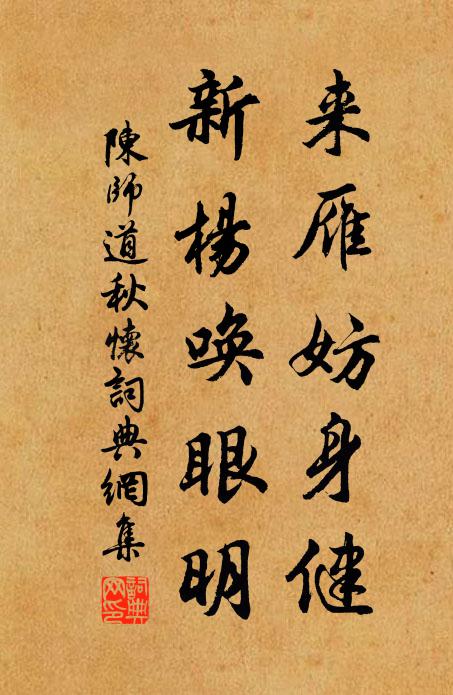 来雁妨身健
新楊唤眼明
陳師道秋懷詞典網集
詞典网印